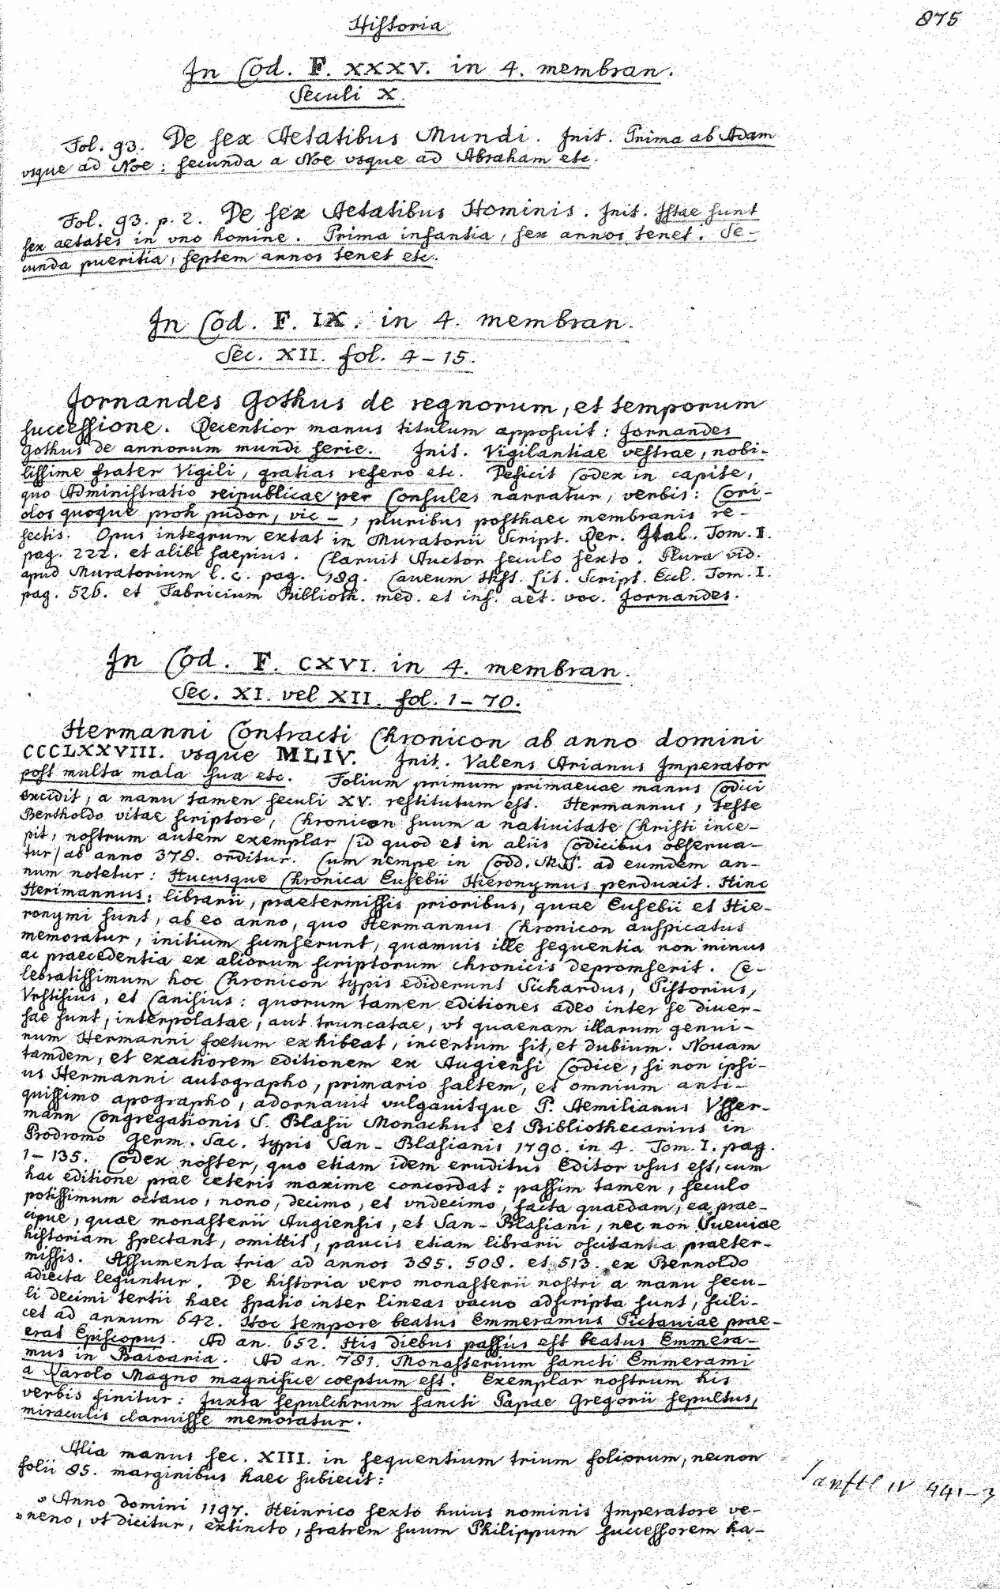 Historia
875
In Cod. F. XXXV. in 4. membran.
Seculi X.
Fol. 93. De sex Aetatibus Mundi. Init. Prima ab Adam
vsque ad Noe: secunda a Noe vsque ad Abraham etc.
Fol. 93. p. 2. De sex Aetatibus Hominis. Init. Istae sunt
sex aetates in vno homine. Prima infantia, sex annos tenet. Se-
cunda pueritia, septem annos tenet etc.
In Cod. F. IX. in 4. membran.
Sec. XII. fol. 4-15.
Jornandes Gothus de regnorum, et temporum
successione. Recentior manus titulum apposuit: Jornandes
Gothus de annorum mundi serie. Init. Vigilantiae vestrae, nobi-
lissime frater Vigili, gratias refero etc. Deficit Codex in capite,
quo Administratio reipublicae per Consules narratur, verbis: Cori-
olos quoque proh pudor, vic-, pluribus posthaec membranis re-
sectis. Opus integrum extat in Muratorii Script. Rer. Ital. Tom. I.
pag. 222. et alibi saepius. Claruit Auctor seculo sexto. Plura vid.
apud Muratorium l. c. pag. 189. Caveum Hist. lit. Script. Eccl. Tom. I.
pag. 526. et Fabricium Biblioth. med. et inf. aet. voc. Jornandes.
In Cod. F. CXVI. in 4. membran.
Sec. XI. vel XII. fol. 1-70.
Hermanni Contracti Chronicon ab anno domini
CCCLXXVIII. vsque MLIV. Init. Valens Arianus Imperator
post multa mala sua etc. Folium primum primaevae manus Codici
excidit, a manu tamen seculi XV. restitutum est. Hermannus, teste
Bertholdo vitae scriptore, Chronicon suum a nativitate Christi ince-
pit, nostrum autem exemplar (id quod et in aliis Codicibus observa-
tur) ab anno 378. orditur. Cum nempe in Codd. MSS. ad eumdem an-
num notetur: Hucusque Chronica Eusebii Hieronymus perduxit. Hinc
Herimannus: librarii, praetermissis prioribus, quae Eusebii et Hie-
ronymi sunt, ab eo anno, quo Hermannus Chronicon auspicatus
memoratur, initium sumserunt, quamuis ille sequentia non minus
ac praecedentia ex aliorum scriptorum chronicis depromserit. Ce-
lebratissimum hoc Chronicon typis ediderunt Sichardus, Pistorius,
Vrstisius, et Canisius: quorum tamen editiones adeo inter se diver-
sae sunt, interpolatae, aut truncatae, vt quaenam illarum genui-
num Hermanni foetum exhibeat, incertum sit, et dubium. Nouam
tandem, et exactiorem editionem ex Augiensi Codice, si non ipsi-
us Hermanni autographo, primario saltem, et omnium anti-
quissimo apographo, adornauit vulgauitque P. Aemilianus Vsser-
mann Congregationis S. Blasii Monachus et Bibliothecarius in
Prodromo Germ. Sac. typis San-Blasianis 1790. in 4. Tom. I. pag.
1-135. Codex noster, quo etiam idem eruditus Editor vsus est, cum
hac editione prae ceteris maxime concordat: passim tamen, seculo
potissimum octauo, nono, decimo, et vndecimo, facta quaedam, ea prae-
cipue, quae monasterii Augiensis, et San-Blasiani, nec non Sueviae
historiam spectant, omittit, paucis etiam librarii oscitantia praeter-
missis. Assumenta tria ad annos 385. 508. et 513. ex Bernoldo
adiecta leguntur. De historia vero monasterii nostri a manu secu-
li decimi tertii haec spatio inter lineas vacuo adscripta sunt, scili-
cet ad annum 642. Hoc tempore beatus Emmeramus Pictaviae prae-
erat Episcopus. Ad an. 652. His diebus passus est beatus Emmera-
mus in Baioaria. Ad an. 781. Monasterium sancti Emmerami
a Karolo Magno magnifice coeptum est. Exemplar nostrum his
verbis finitur: Juxta sepulchrum sancti Papae Gregorii sepultus,
miraculis claruisse memoratur.
Alia manus sec. XIII. in sequentium trium foliorum, necnon
folii 85. marginibus haec subiecit:
» Anno domini 1197. Heinrico sexto huius nominis Imperatore ve-
» neno, vt dicitur, extincto, fratrem suum Philippum successorem ha-
Sanftl IV 441-3